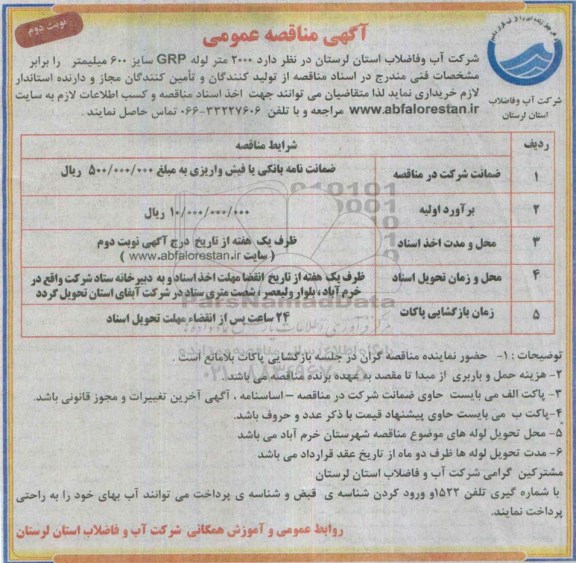 نوبت دوم
آگهی مناقصه عمومی
شرکت آب و فاضلاب
استان لرستان
شرکت آب وفاضلاب استان لرستان در نظر دارد ۲۰۰۰ متر لوله GRP سایز ۶۰۰ میلیمتر را برابر
مشخصات فنی مندرج در اسناد مناقصه از تولید کنندگان و تأمین کنندگان مجاز و دارنده استاندارد
لازم خریداری نماید لذا متقاضیان می توانند جهت اخذ اسناد مناقصه و کسب اطلاعات لازم به سایت
www.abfalorestan.ir مراجعه و با تلفن ۳۳۲۲۷۶۰۶-۰۶۶ تماس حاصل نمایند .
ردیف شرایط مناقصه
۱ ضمانت شرکت در مناقصه ضمانت نامه بانکی یا فیش واریزی به مبلغ ۵۰۰/۰۰۰/۰۰۰ ریال
۲ برآورد اولیه ۱۰/۰۰۰/۰۰۰/۰۰۰ ریال
۳ محل و مدت اخذ اسناد ظرف یک هفته از تاریخ درج آگهی نوبت دوم
( سایت www.abfalorestan.ir )
۴ محل و زمان تحویل اسناد ظرف یک هفته از تاریخ انقضا مهلت اخذ اسناد و به دبیرخانه ستاد شرکت واقع در
خرم آباد ، بلوار ولیعصر ، شصت متری ستاد در شرکت آبفای استان تحویل گردد
۵ زمان بازگشایی پاکات ۲۴ ساعت پس از انقضاء مهلت تحویل اسناد
ParsNamadData
توضیحات : ۱- حضور نماینده مناقصه گران در جلسه بازگشایی پاکات بلامانع است .
۲- هزینه حمل و باربری از مبدا تا مقصد به عهده برنده مناقصه می باشد.
۳- پاکت الف می بایست حاوی ضمانت شرکت در مناقصه – اساسنامه ، آگهی آخرین تغییرات و مجوز قانونی باشد.
۴- پاکت ب می بایست حاوی پیشنهاد قیمت با ذکر عدد و حروف باشد.
۵- محل تحویل لوله های موضوع مناقصه شهرستان خرم آباد می باشد
۶- مدت تحویل لوله ها ظرف دو ماه از تاریخ عقد قرارداد می باشد
مشترکین گرامی شرکت آب و فاضلاب استان لرستان
با شماره گیری تلفن ۱۵۲۲و ورود کردن شناسه ی قبض و شناسه ی پرداخت می توانند آب بهای خود را به راحتی
پرداخت نمایند.
روابط عمومی و آموزش همگانی شرکت آب و فاضلاب استان لرستان